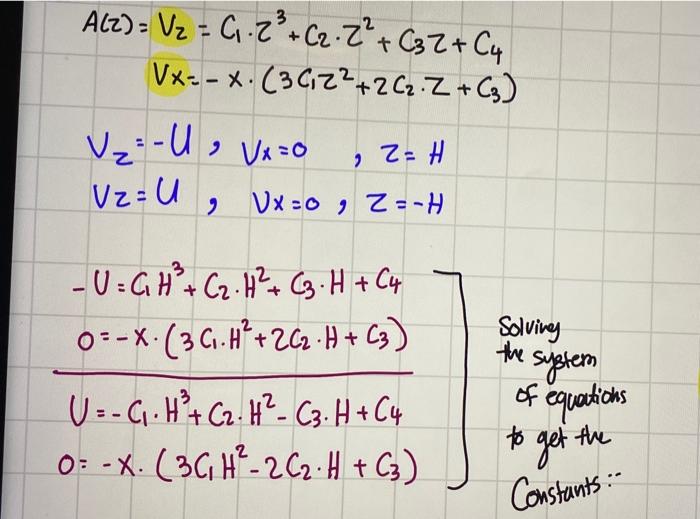 A(z) = Vz = C₁·z³ + C₂·z² + C₃z + C₄
Vx = - x · (3C₁z² + 2C₂·z + C₃)
Vz = -U , Vx = 0 , z = H
Vz = U , Vx = 0 , z = -H
-U = C₁H³ + C₂·H² + C₃·H + C₄
0 = -x · (3C₁·H² + 2C₂·H + C₃)
U = -C₁·H³ + C₂·H² - C₃·H + C₄
0 = -x · (3C₁H² - 2C₂·H + C₃)
Solving
the system
of equations
to get the
Constants :-